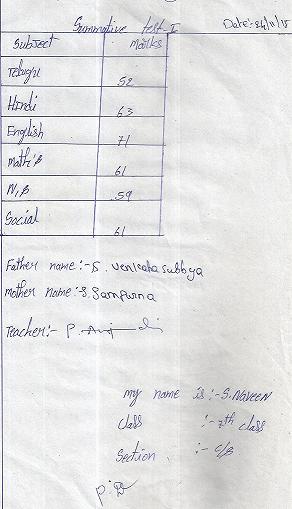 Summative test-I Date:-24/11/15
Subject Marks
Telugu 52
Hindi 63
English 71
Math's 61
N,S 59
Social 61
Father name:-S. Venkata subbya
Mother name:-S. Sampurna
Teacher:- P.
my name is:-S. Naveen
class :- 7th class
Section :-